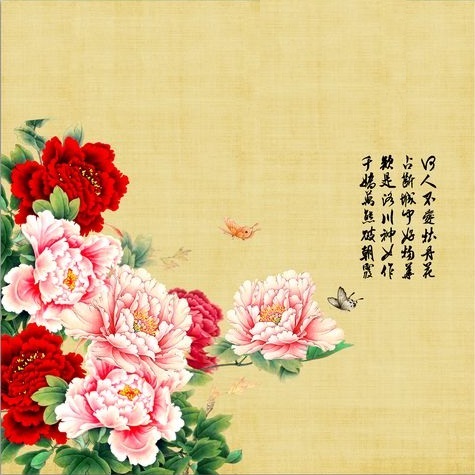 何人不爱牡丹花
占断城中好物华
疑是洛川神女作
千娇万态破朝霞